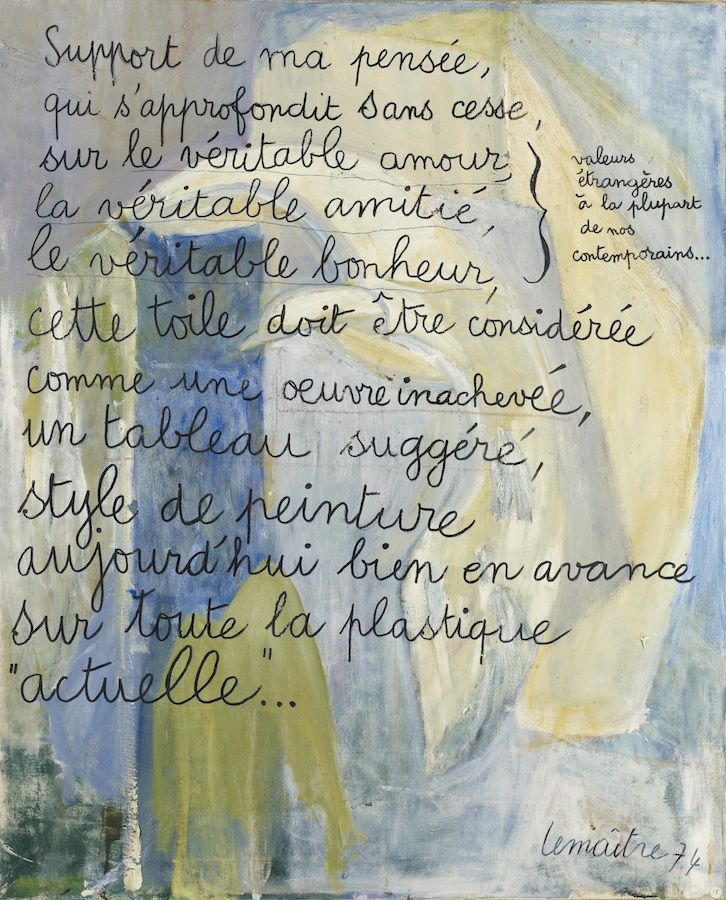 Support de ma pensée,
qui s'approfondit sans cesse,
sur le véritable amour,
la véritable amitié,
le véritable bonheur,
valeurs
étrangères
à la plupart
de nos
contemporains...
cette toile doit être considérée
comme une oeuvre inachevée,
un tableau suggéré,
style de peinture
aujourd'hui bien en avance
sur toute la plastique
"actuelle"...
lemaître 74